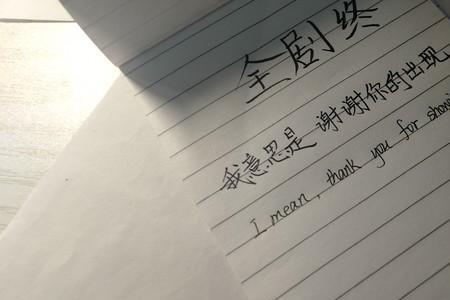 全剧终
我意思是 谢谢你的出现
I mean, thank you for